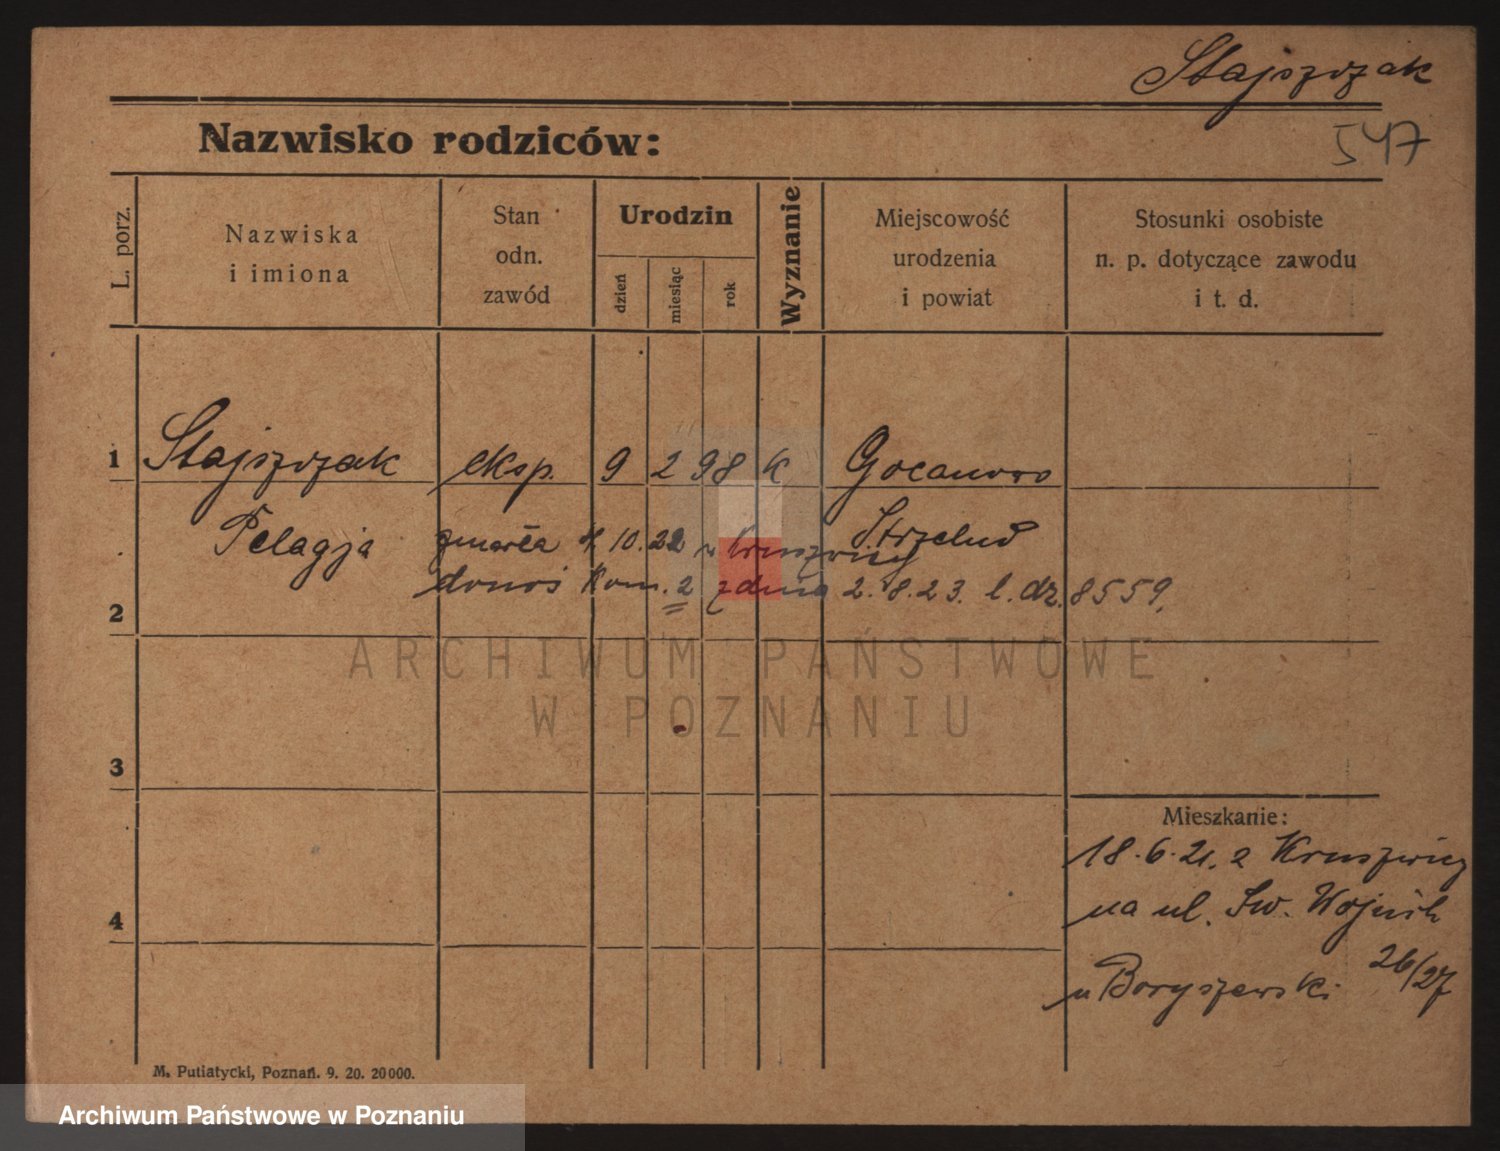 Stajszczak
547
Nazwisko rodziców:
L. porz.
Nazwiska
i imiona
Stan
odn.
zawód
Urodzin
dzień
miesiąc
rok
Wyznanie
Miejscowość
urodzenia
i powiat
Stosunki osobiste
n. p. dotyczące zawodu
i t. d.
1 Stajszczak eksp. 9 2 98 k Gocanowo
Pelagja Strzelno
zmarła 10.22 w Kruszwicy
donos Kom. 2 z dnia 2. 8. 23. l. dz. 8559.
2
ARCHIWUM PAŃSTWOWE
W POZNANIU
3
Mieszkanie:
18.6.21. z Kruszwicy
na ul. Św. Wojciech
26/27
u Boryszewski
4
M. Putiatycki, Poznań. 9. 20. 20000.
Archiwum Państwowe w Poznaniu